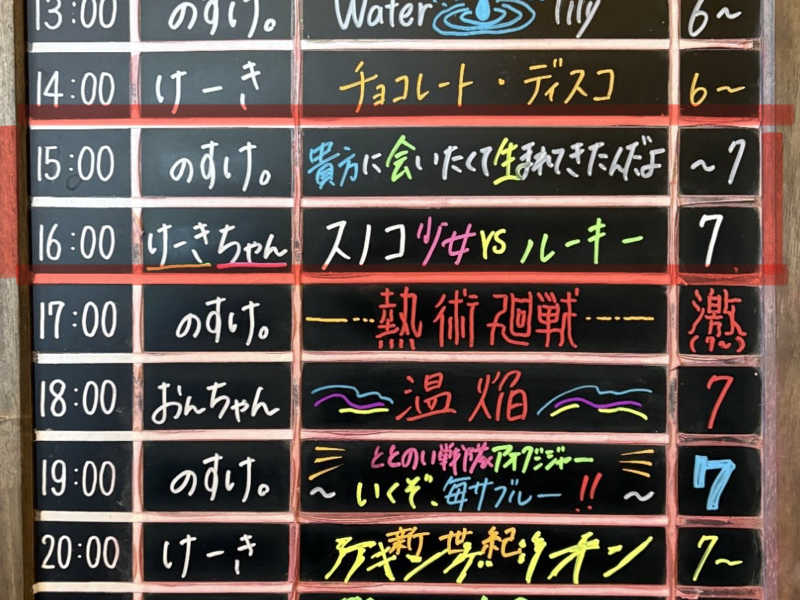 13:00 のすけ。 Water lily 6〜
14:00 けーき チョコレート・ディスコ 6〜
15:00 のすけ。 貴方に会いたくて生まれてきたんだよ 〜7
16:00 けーきちゃん スノコ少女 vs ルーキー 7
17:00 のすけ。 熱術廻戦 激(7〜)
18:00 おんちゃん 温焔 7
19:00 のすけ。 ととのい戦隊アオグジャー
〜いくぞ、毎サブルー!!〜 7
20:00 けーき 新世紀 7〜